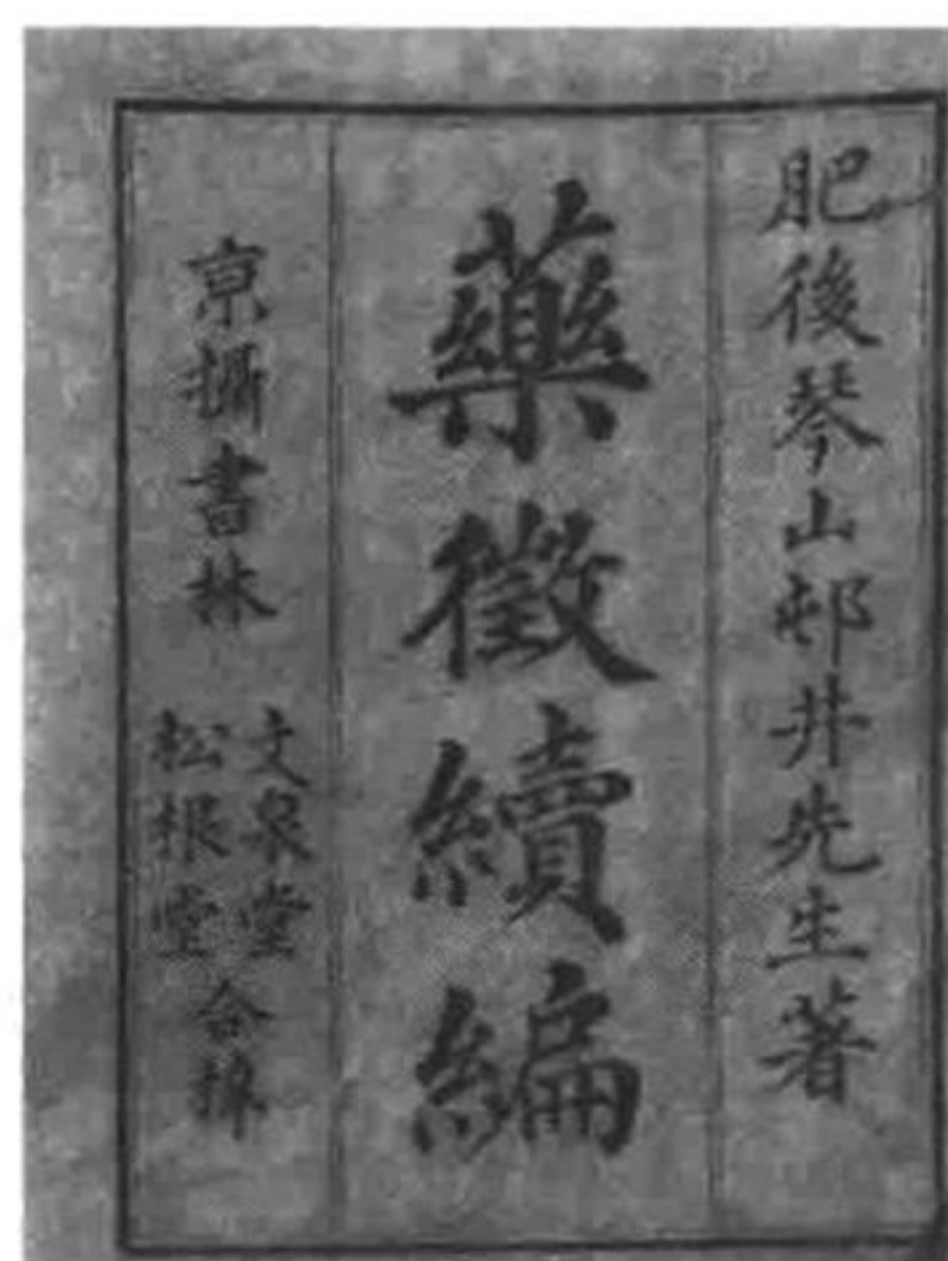 肥後琴山邨井先生著
藥徵續編
京攝書林
文泉堂
松根堂
合梓